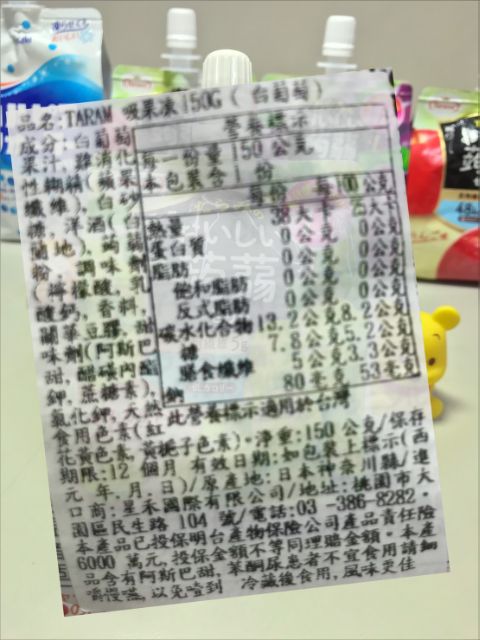 品名:TARAMI 吸果凍150G (白葡萄)
成分:白葡萄
果汁,難消化
性糊精(蘋果
纖維),白砂
糖,洋酒(白
蘭地),蒟蒻
粉,調味劑
(檸檬酸,乳
酸鈣,香料,
關華豆膠,甜
味劑(阿斯巴
甜,醋磺內酯
鉀,蔗糖素),
氯化鉀,天然
食用色素(紅
花黃色素,黃梔子色素)。淨重:150 公克/保存
期限:12 個月 有效日期:如包裝上標示(西
元 年.月.日)/原產地:日本神奈川縣/進
口商:星禾國際有限公司/地址:桃園市大
園區民生路 104 號/電話:03 -386-8282。
本產品已投保明台產物保險公司產品責任險
6000 萬元,投保金額不等同理賠金額。本產
品含有阿斯巴甜,苯酮尿患者不宜食用請細
嚼慢嚥,以免噎到 冷藏後食用,風味更佳
營養標示
每一份量 150 公克
本包裝含 1 份
每份 每100 公克
熱量 38 大卡 25 大卡
蛋白質 0 公克 0 公克
脂肪 0 公克 0 公克
飽和脂肪 0 公克 0 公克
反式脂肪 0 公克 0 公克
碳水化合物 13.2 公克 8.2 公克
糖 7.8 公克 5.2 公克
膳食纖維 5 公克 3.3 公克
鈉 80 毫克 53 毫克
此營養標示適用於台灣
おいしい
蒟蒻